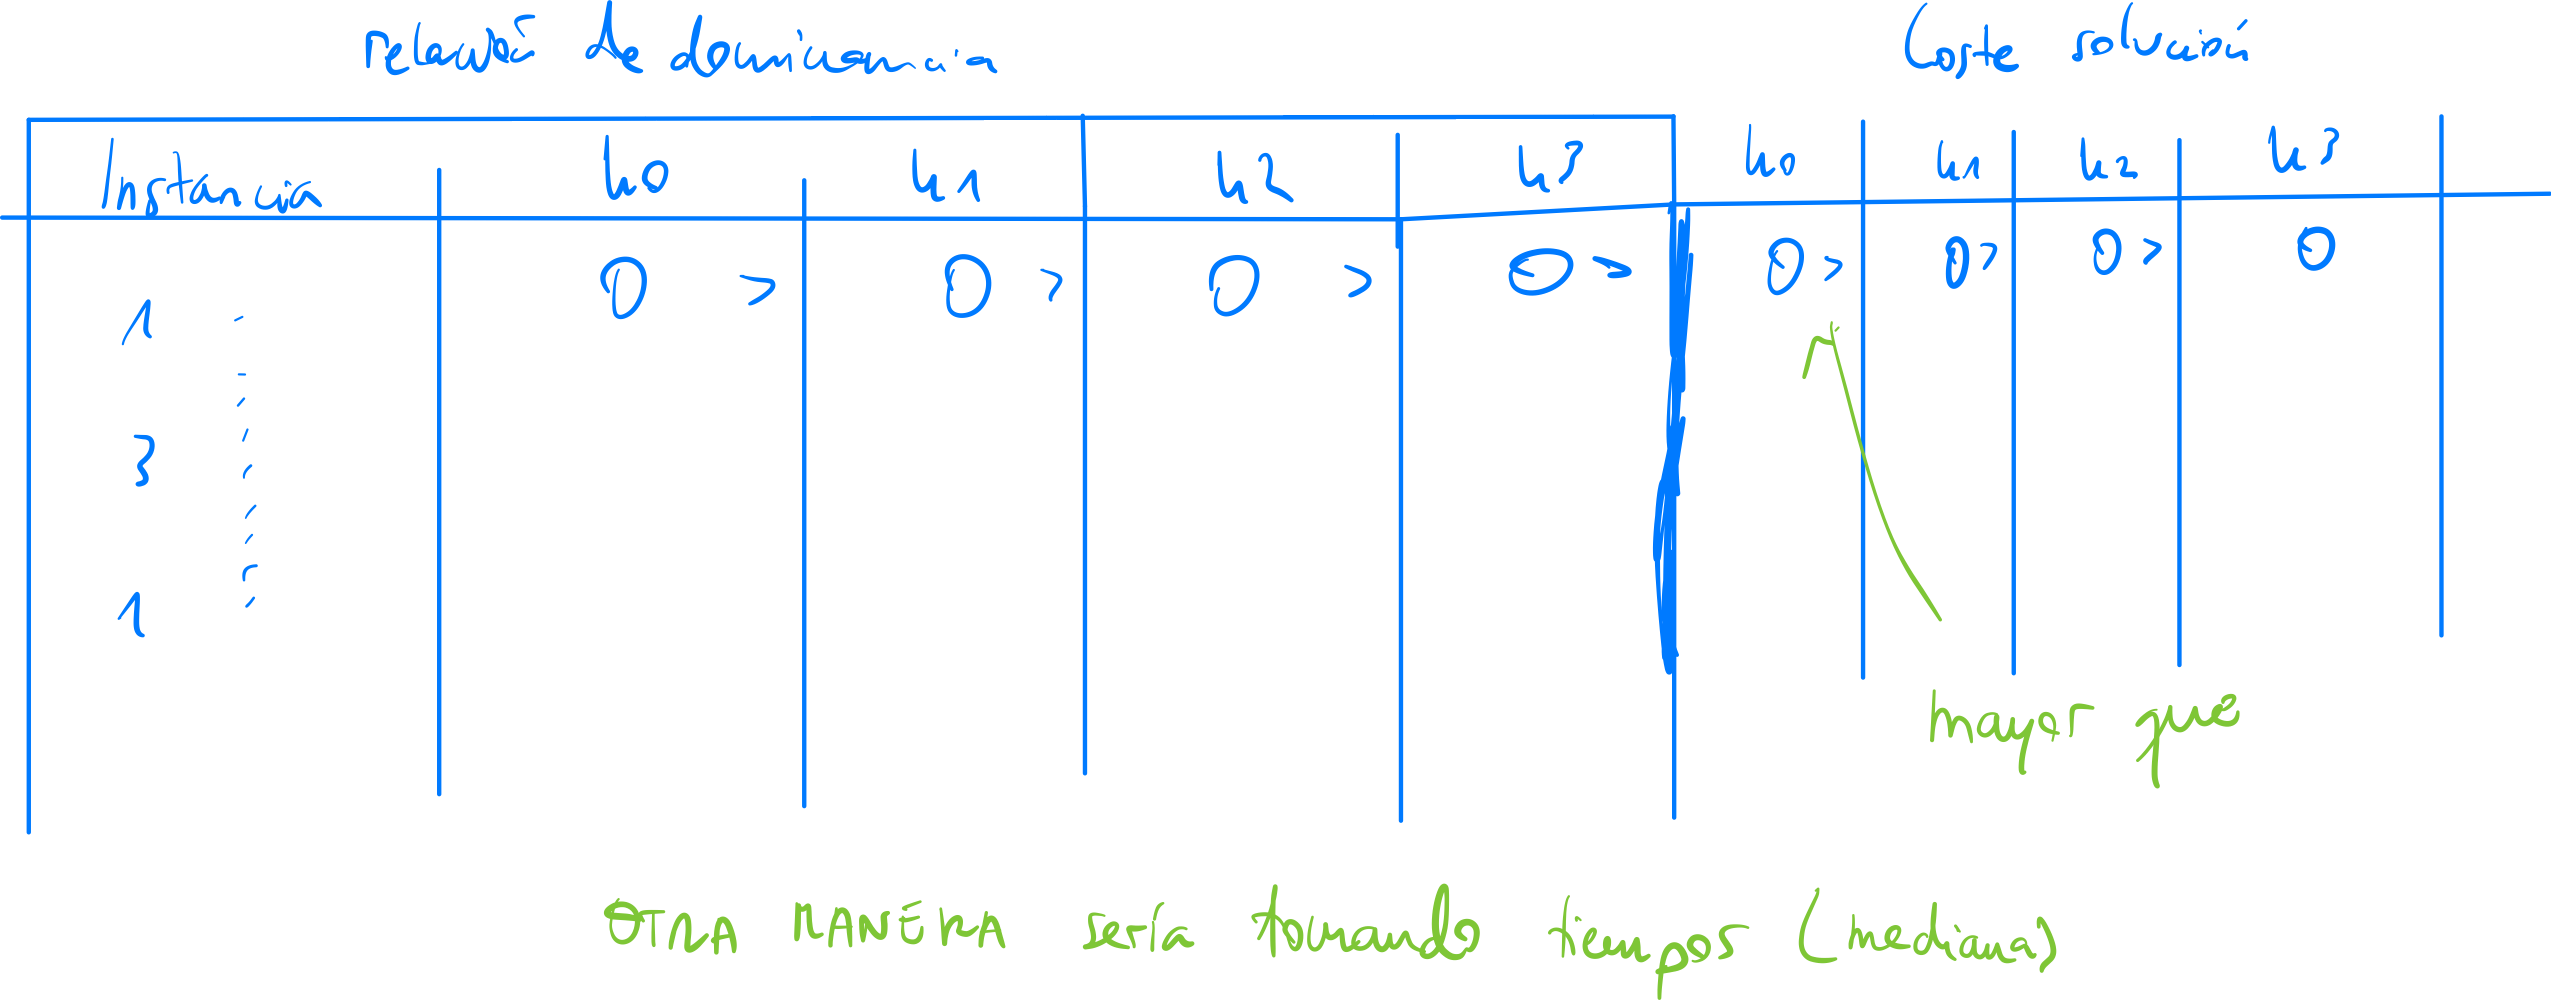 relación de dominancia Coste solución
Instancia h0 h1 h2 h3 h0 h1 h2 h3
0 > 0 > 0 > 0 > 0 > 0 > 0 > 0
1
3
1
mayor que
OTRA MANERA sería tomando tiempos (mediana)